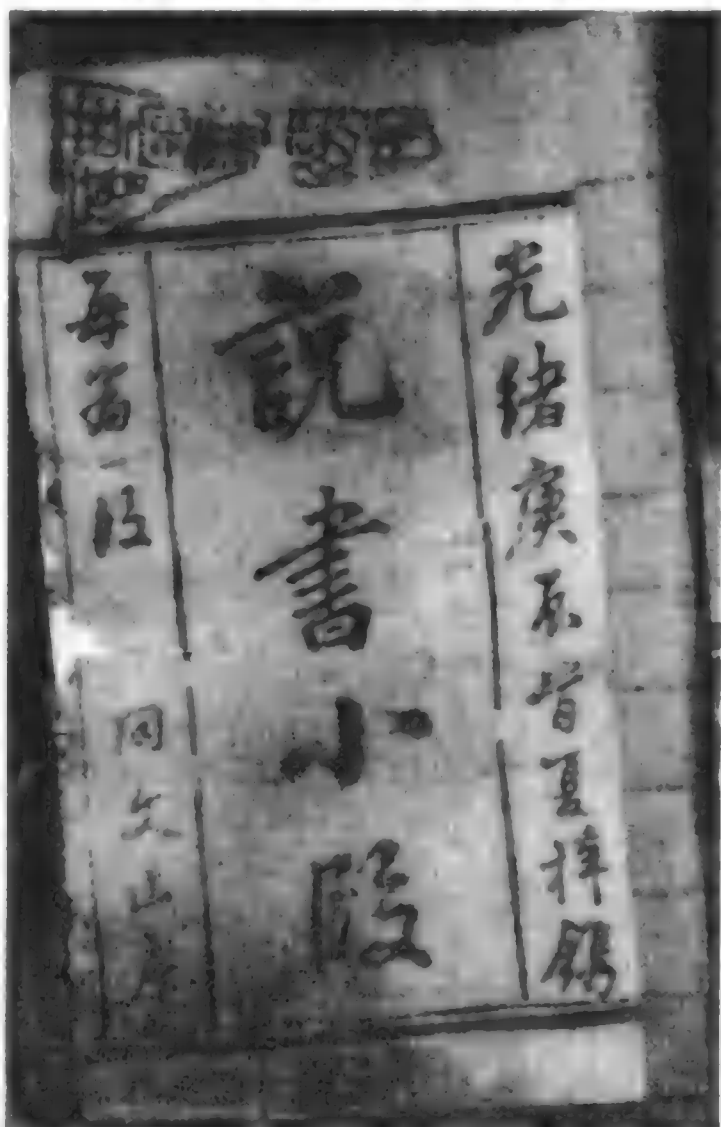 光緒庚辰首夏梓鐫
說書小段
每篇一段
同文山房